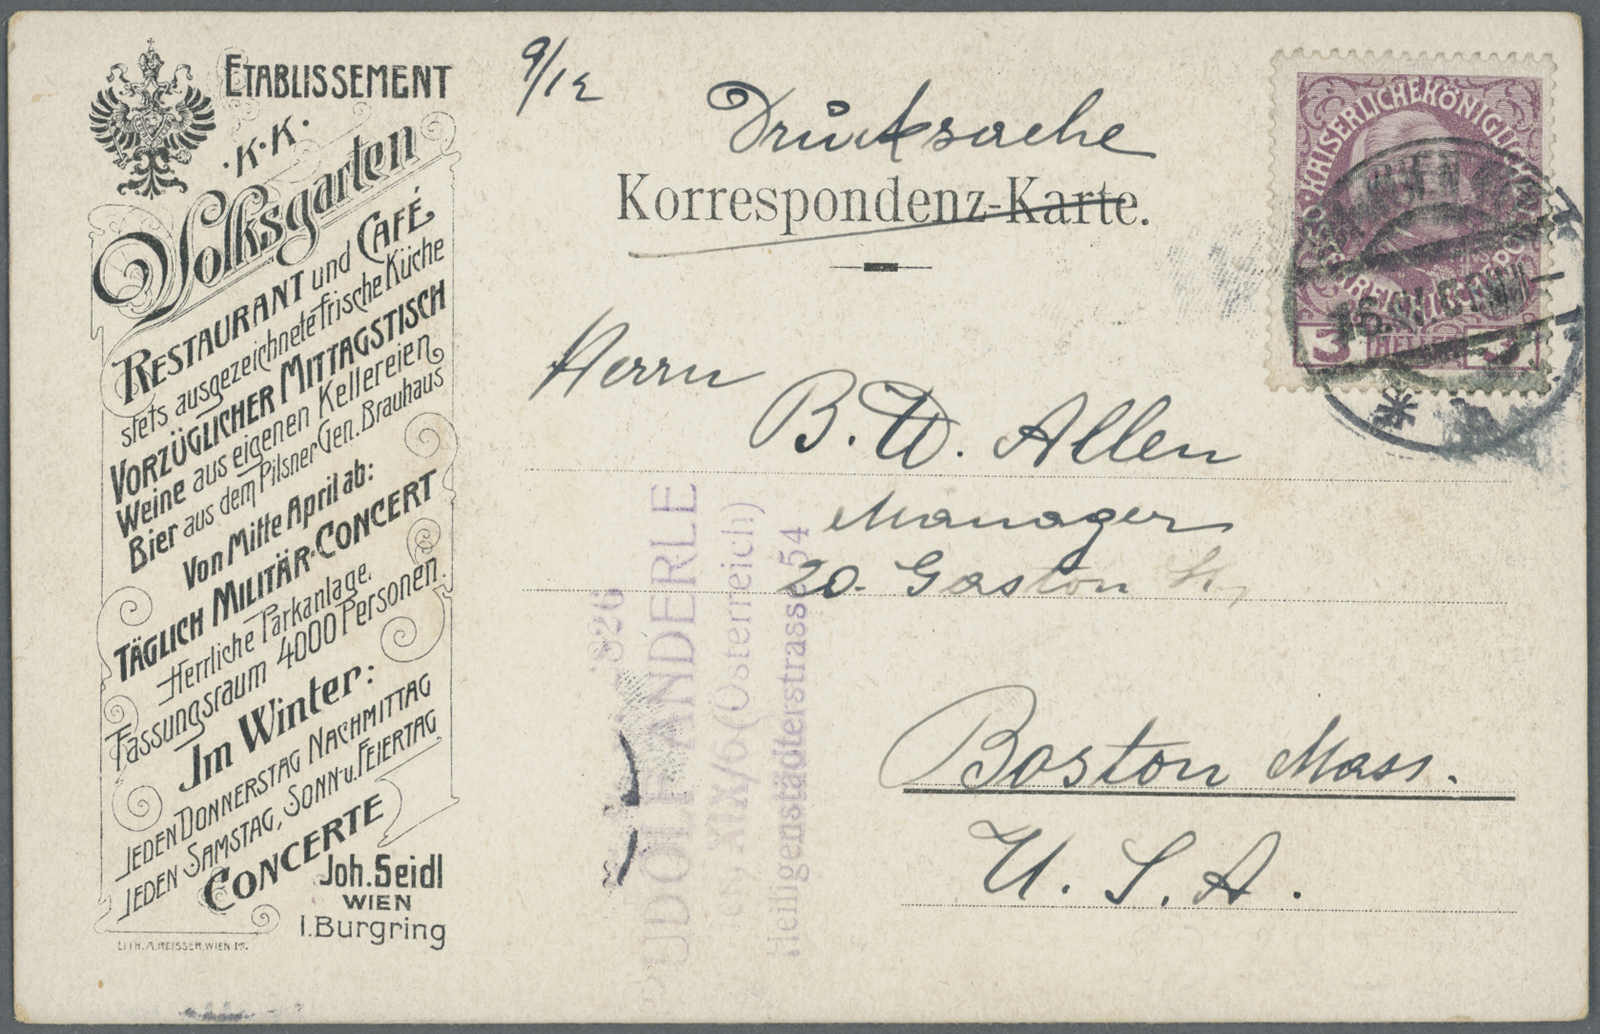 ETABLISSEMENT
·K·K·
Volksgarten
RESTAURANT und CAFÉ
stets ausgezeichnete frische Küche
VORZÜGLICHER MITTAGSTISCH
Weine aus eigenen Kellereien
Bier aus dem Pilsner Gen. Brauhaus
Von Mitte April ab:
TÄGLICH MILITÄR-CONCERT
Herrliche Parkanlage.
Fassungsraum 4000 Personen.
Im Winter:
JEDEN DONNERSTAG NACHMITTAG
JEDEN SAMSTAG, SONN-u. FEIERTAG
CONCERTE
Joh. Seidl
WIEN
I. Burgring
LITH. A. REISSER, WIEN
9/12
Drucksache
Korrespondenz-Karte.
Herrn
B. W. Allen
Manager
20. Gaston
Boston Mass.
U. S. A.
826
RUDOLF ANDERLE
XIX/6 (Österreich)
Heiligenstädterstrasse 54
KAISERLICHEKÖNIGLICHE
3 HELLER 3
WIEN